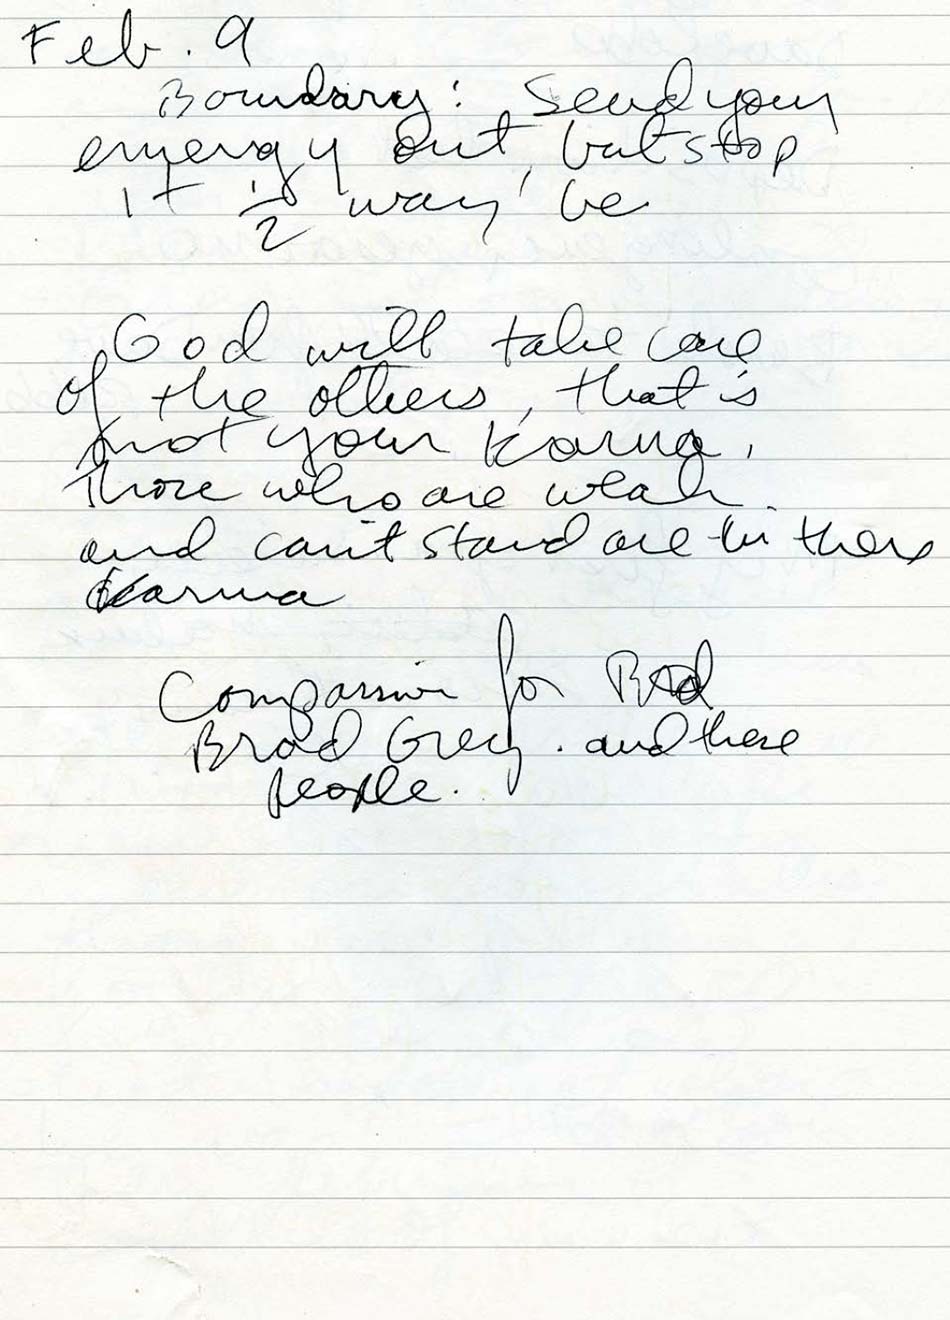 Feb. 9
Boundary: Send your
energy out, but stop
it 1/2 way, be
God will take care
of the others, that is
not your Karma,
Those who are weak
and can't stand are in there
Karma
Compassion for Brad
Brad Grey. and these
people.